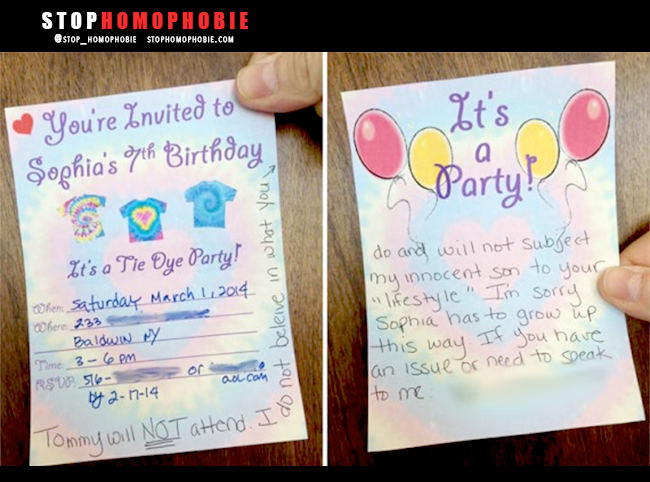 STOPHOMOPHOBIE
@STOP_HOMOPHOBIE STOPHOMOPHOBIE.COM
You're Invited to
Sophia's 7th Birthday
It's a Tie Dye Party!
When: Saturday March 1, 2014
Where: 233
Baldwin NY
Time: 3-6 pm
RSVP: 516- or
aol.com
by 2-17-14
Tommy will NOT attend. I
do not beleive in what you
It's
a
Party!
do and will not subject
my innocent son to your
"lifestyle" I'm sorry
Sophia has to grow up
this way. If you have
an issue or need to speak
to me: